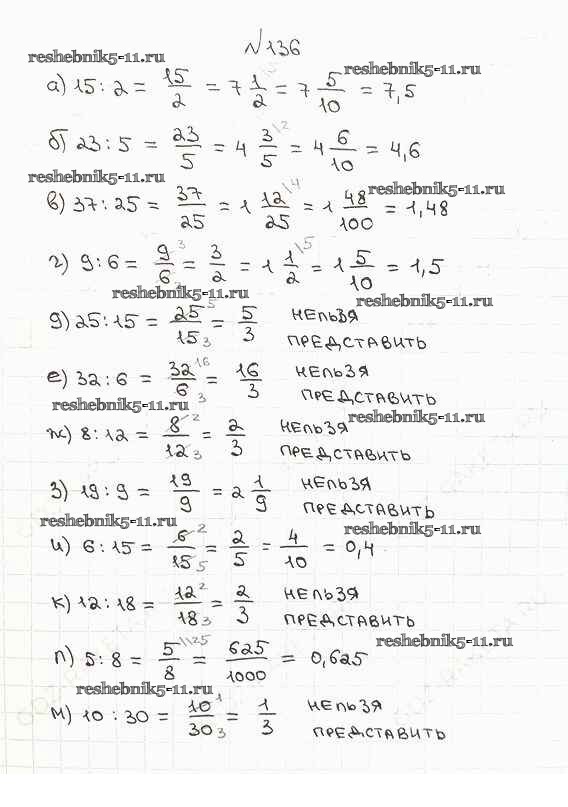 №136
reshebnik5-11.ru
reshebnik5-11.ru
а) 15 : 2 = 15/2 = 7 1/2 = 7 5/10 = 7,5
б) 23 : 5 = 23/5 = 4 3/5 \2 = 4 6/10 = 4,6
reshebnik5-11.ru
reshebnik5-11.ru
в) 37 : 25 = 37/25 = 1 12/25 \4 = 1 48/100 = 1,48
г) 9 : 6 = 9/6 3 = 3/2 = 1 1/2 \5 = 1 5/10 = 1,5
reshebnik5-11.ru
reshebnik5-11.ru
д) 25 : 15 = 25/15 5 3 = 5/3 НЕЛЬЗЯ
ПРЕДСТАВИТЬ
е) 32 : 6 = 32/6 16 3 = 16/3 НЕЛЬЗЯ
ПРЕДСТАВИТЬ
reshebnik5-11.ru
reshebnik5-11.ru
ж) 8 : 12 = 8/12 2 3 = 2/3 НЕЛЬЗЯ
ПРЕДСТАВИТЬ
з) 19 : 9 = 19/9 = 2 1/9 НЕЛЬЗЯ
ПРЕДСТАВИТЬ
reshebnik5-11.ru
reshebnik5-11.ru
и) 6 : 15 = 6/15 2 5 = 2/5 = 4/10 = 0,4
к) 12 : 18 = 12/18 2 3 = 2/3 НЕЛЬЗЯ
ПРЕДСТАВИТЬ
reshebnik5-11.ru
л) 5 : 8 = 5/8 \125 = 625/1000 = 0,625
reshebnik5-11.ru
м) 10 : 30 = 10/30 1 3 = 1/3 НЕЛЬЗЯ
ПРЕДСТАВИТЬ